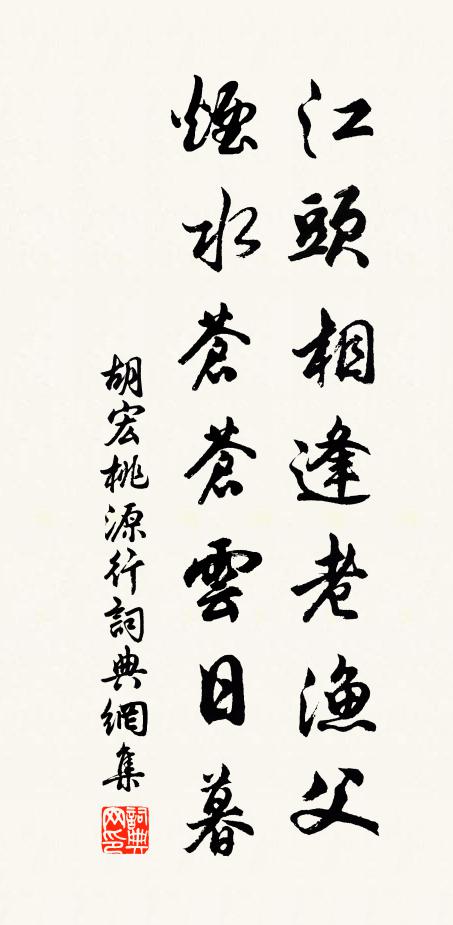 江頭相逢老漁父
煙水蒼蒼雲日暮
胡宏桃源行詞典網集
詞典网印